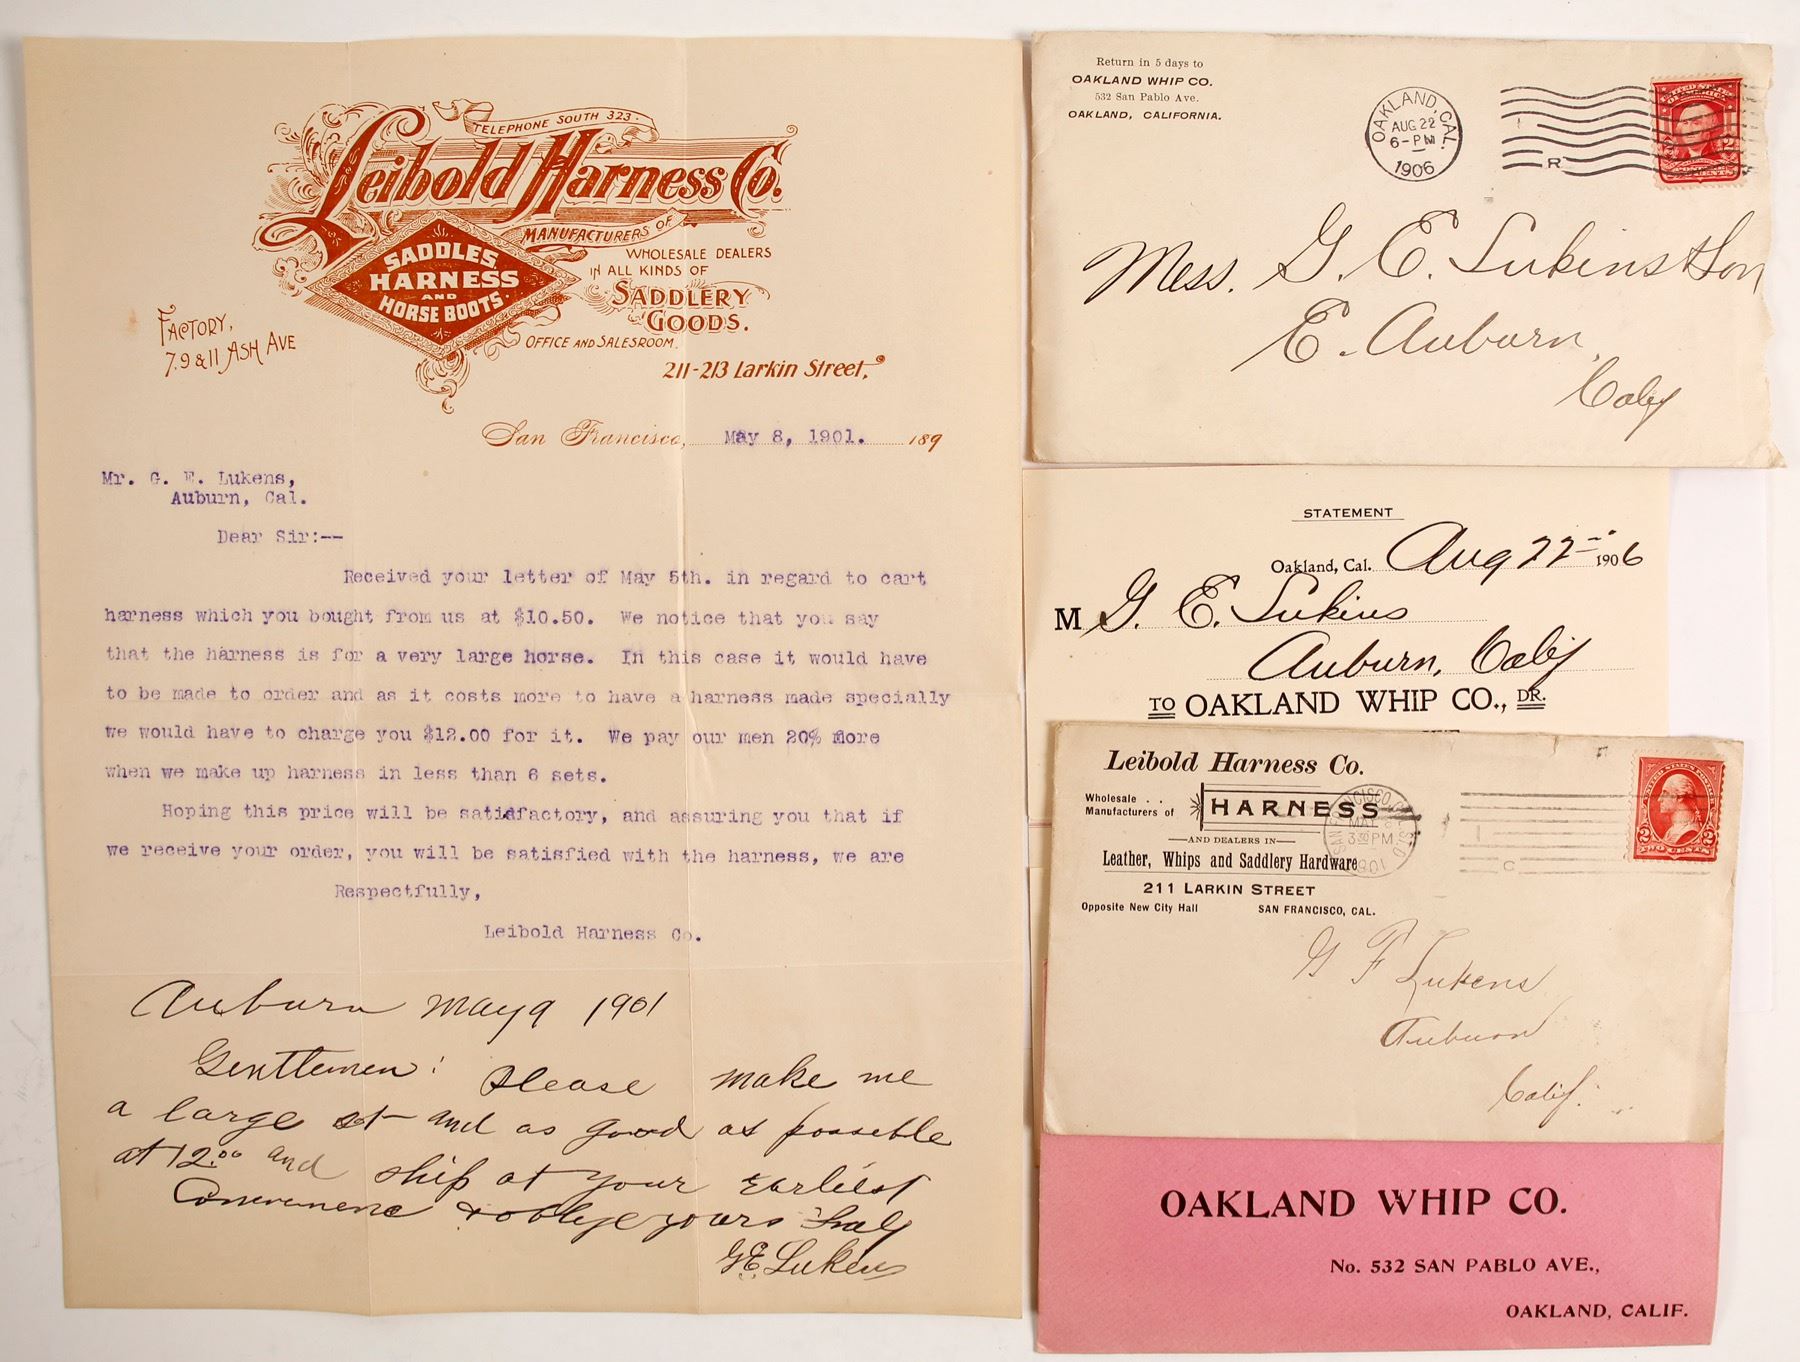 TELEPHONE SOUTH 323.
Leibold Harness Co.
MANUFACTURERS OF
SADDLES,
HARNESS
AND
HORSE BOOTS.
WHOLESALE DEALERS
IN ALL KINDS OF
SADDLERY
GOODS.
OFFICE AND SALESROOM.
211-213 Larkin Street,
FACTORY,
7.9 & 11 ASH AVE
San Francisco, May 8, 1901. 189
Mr. G. E. Lukens,
Auburn, Cal.
Dear Sir:--
Received your letter of May 5th. in regard to cart
harness which you bought from us at $10.50. We notice that you say
that the harness is for a very large horse. In this case it would have
to be made to order and as it costs more to have a harness made specially
we would have to charge you $12.00 for it. We pay our men 20% more
when we make up harness in less than 6 sets.
Hoping this price will be satisfactory, and assuring you that if
we receive your order, you will be satisfied with the harness, we are
Respectfully,
Leibold Harness Co.
Auburn May 9 1901
Gentlemen: Please make me
a large st and as good as possible
at 12.00 and ship at your Earliest
Convenience & oblige yours Truly
GE Lukens
Return in 5 days to
OAKLAND WHIP CO.
532 San Pablo Ave.
OAKLAND, CALIFORNIA.
OAKLAND, CAL.
AUG 22
6-PM
1906
R
Mess. G. E. Lukins & Son
E. Auburn,
Calif
STATEMENT
Oakland, Cal. Aug 22 1906
M G. E. Lukins
Auburn, Calif
TO OAKLAND WHIP CO., DR.
Leibold Harness Co.
Wholesale . .
Manufacturers of
HARNESS
AND DEALERS IN
Leather, Whips and Saddlery Hardware
211 LARKIN STREET
Opposite New City Hall SAN FRANCISCO, CAL.
MAY 8
3 30 PM
C
UNITED STATES POSTAGE
2 2
TWO CENTS
G F Lukens
Auburn
Calif.
OAKLAND WHIP CO.
No. 532 SAN PABLO AVE.,
OAKLAND, CALIF.